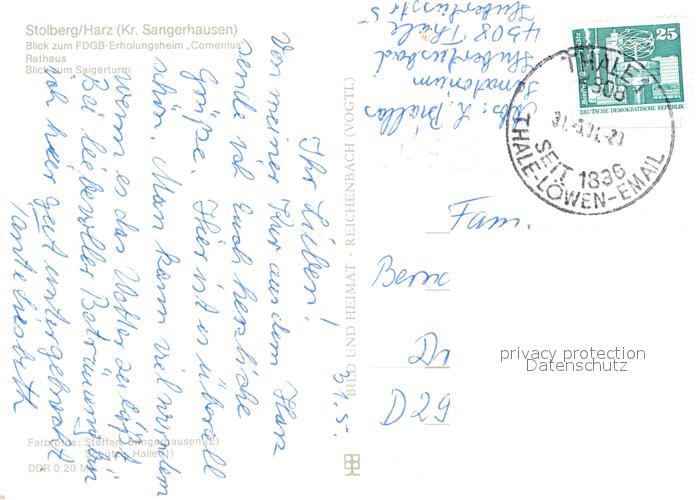 Stolberg/Harz (Kr. Sangerhausen)
Blick zum FDGB-Erholungsheim „Comenius"
Rathaus
Blick zum Saigerturm
31. 5.
Ihr Lieben!
Von meiner Kur aus dem Harz
sende ich Euch herzliche
Grüße. Hier ist es überall
schön. Man kann viel wandern
wenn es das Wetter zuläßt.
Bei liebevoller Betreuung bin
ich hier gut untergebracht.
Tante Liesbeth
Farbfotos: Steffen, Sangerhausen (2)
DDR 0,20 M
BILD UND HEIMAT · REICHENBACH (VOGTL)
Abs: L.
Sanatorium
Hubertusbad
4308 Thale
Hubertusstr 5
25
DEUTSCHE DEMOKRATISCHE REPUBLIK
THALE 1
4308
SEIT 1836
THALE-LÖWEN-EMAIL
Fam.
D29
privacy protection
Datenschutz